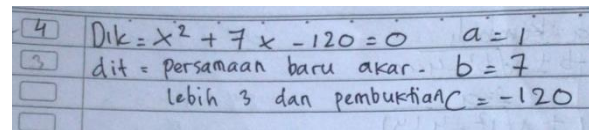 4 Dik = x² + 7x - 120 = 0 a = 1
3 dit = persamaan baru akar - b = 7
lebih 3 dan pembuktian C = -120